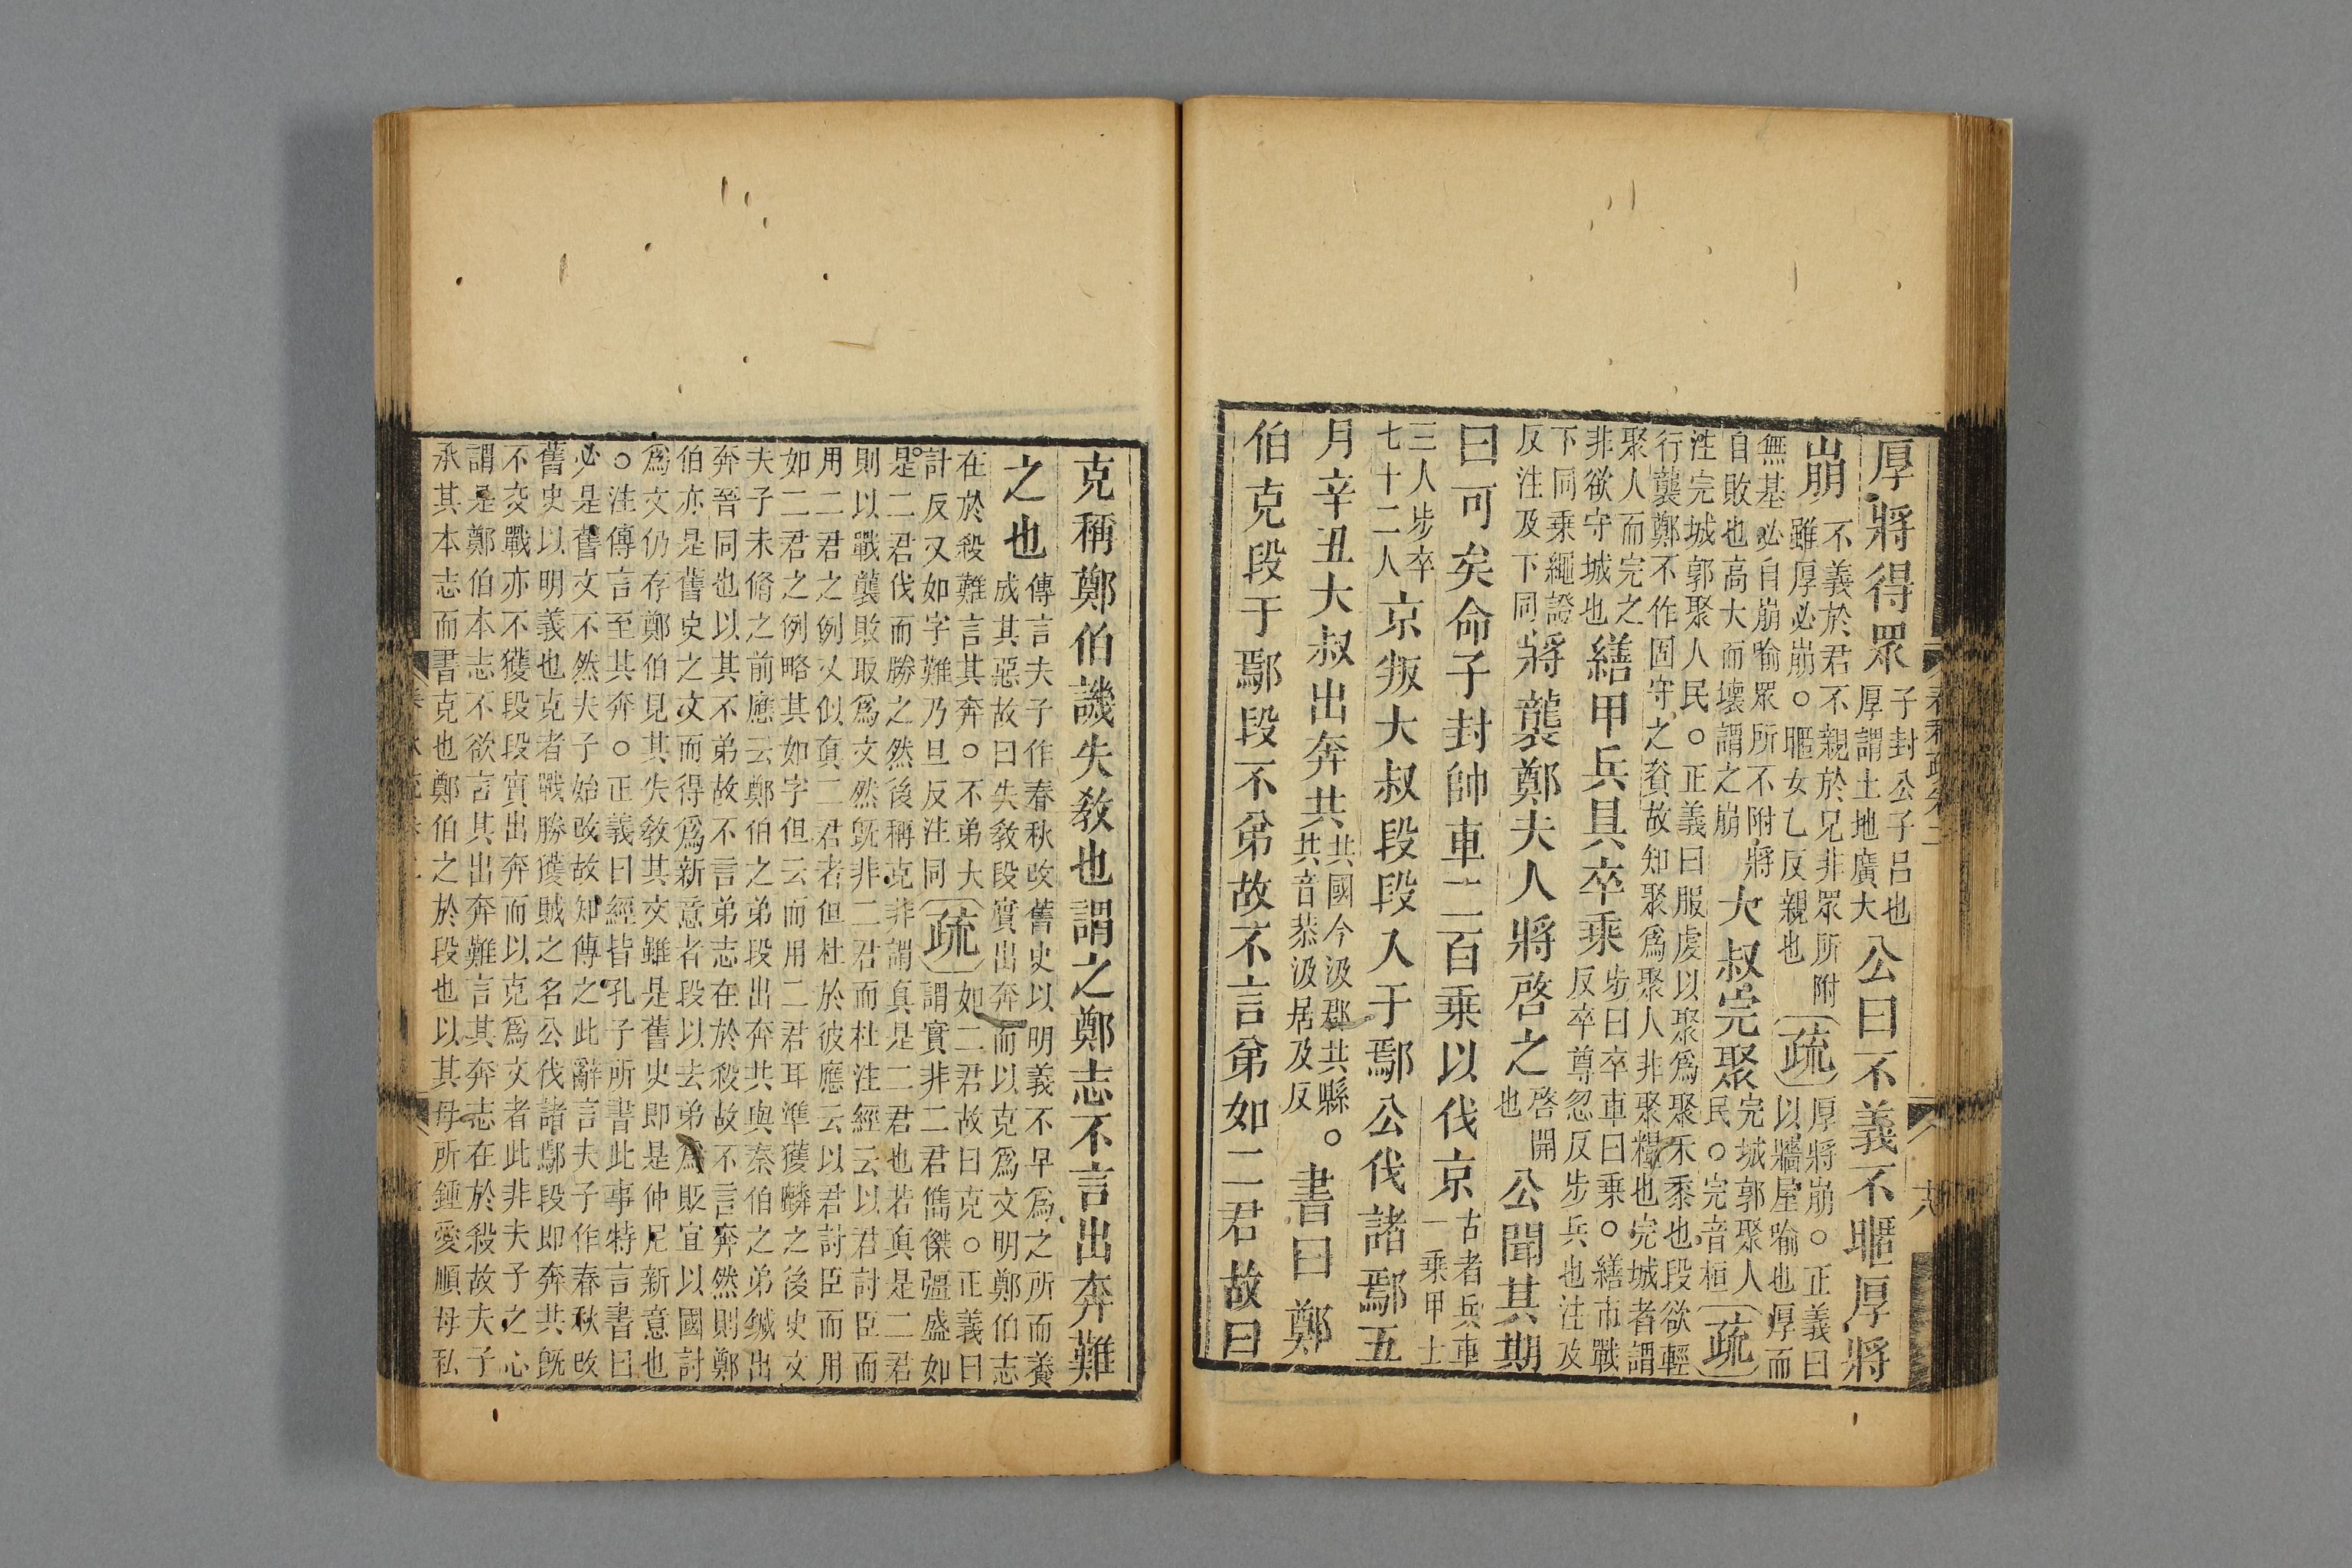 春秋疏卷二
厚將得眾子封公子呂也厚謂土地廣大公曰不義不暱厚將
崩不義於君不親於兄非眾所附雖厚必崩○暱女乙反親也疏厚將崩○正義曰以牆屋喻也厚而
無基必自崩喻眾所不附將自敗也高大而壞謂之崩大叔完聚完城郭聚人民○完音桓疏
注完城郭聚人民○正義曰服虔以聚爲聚禾黍也段欲輕
行襲鄭不作固守之資故知聚爲聚人非聚糧也完城者謂
聚人而完之非欲守城也繕甲兵具卒乘步曰卒車曰乘○繕市戰反卒尊忽反步兵也注及
下同乘繩證反注及下同將襲鄭夫人將啓之啓開也公聞其期
曰可矣命子封帥車二百乘以伐京古者兵車一乘甲士
三人步卒七十二人京叛大叔段段入于鄢公伐諸鄢五
月辛丑大叔出奔共共國今汲郡共縣共音恭汲居及反○書曰鄭
伯克段于鄢段不弟故不言弟如二君故曰
克稱鄭伯譏失教也謂之鄭志不言出奔難
之也傳言夫子作春秋改舊史以明義不早爲之所而養成其惡故曰失教段實出奔而以克爲文明鄭伯志
在於殺難言其奔○不弟大計反又如字難乃旦反注同疏如二君故曰克○正義曰謂實非二君儁傑彊盛如
是二君伐而勝之然後稱克非謂真是二君也若真是二君
則以戰襲敗取爲文然既非二君而杜注經云以君討臣而
用二君之例又似真二君者但杜於彼應云以君討臣而用
如二君之例略其如字但云而用二君耳準獲麟之後史文
夫子未脩之前應云鄭伯之弟段出奔共與秦伯之弟鍼出
奔晉同也以其不弟故不言弟志在於殺故不言奔然則鄭
伯亦是舊史之文而得爲新意者段以去弟爲貶宜以國討
爲文仍存鄭伯見其失教其文雖是舊史即是仲尼新意也
○注傳言至其奔○正義曰經皆孔子所書此事特言書曰
必是舊文不然夫子始改故知傳之此辭言夫子作春秋改
舊史以明義也克者戰勝獲賊之名公伐諸鄢段即奔共既
不交戰亦不獲段段實出奔而以克爲文者此非夫子之心
謂是鄭伯本志不欲言其出奔難言其奔志在於殺故夫子
承其本志而書克也鄭伯之於段也以其母所鍾愛順母私